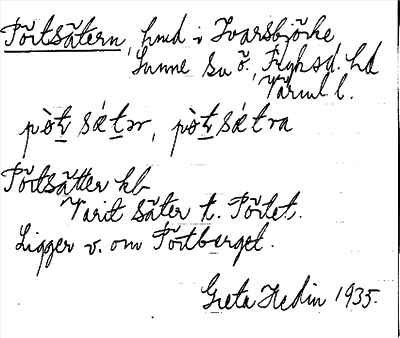 Pörtsätern, hmd i Ivarsbjörke
Sunne sn ö., Flyksd. hd
Värml l.
pò̀t sǽtər, pò̀t sǽtra
Pörtsätter kb
Varit säter t. Pörtet.
Ligger v. om Pörtberget.
Greta Hedin 1935.